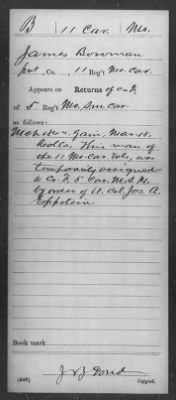 B | 11 Cav. | Mo.
James Bowman
Pvt., Co. , 11 Reg't Mo. Cav.
Appears on Returns of
of 5 Reg't Mo. S.M. Cav.
as follows:
Mch 1864. Gain, Mar. 18.
Rolla. This man of
the 11 Mo. Cav. Vols, was
temporarily assigned
to Co. 5 Cav. M.S.M.
by order of Lt. Col. Jos. A.
Eppstein.
Book mark
(546)
Copyist.